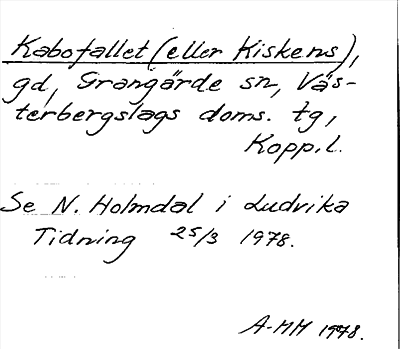 Kabofallet (eller Kiskens),
gd, Grangärde sn, Väs-
terbergslags doms. tg,
Kopp.l.
Se N. Holmdal i Ludvika
Tidning 25/3 1978.
A-MM 1978.